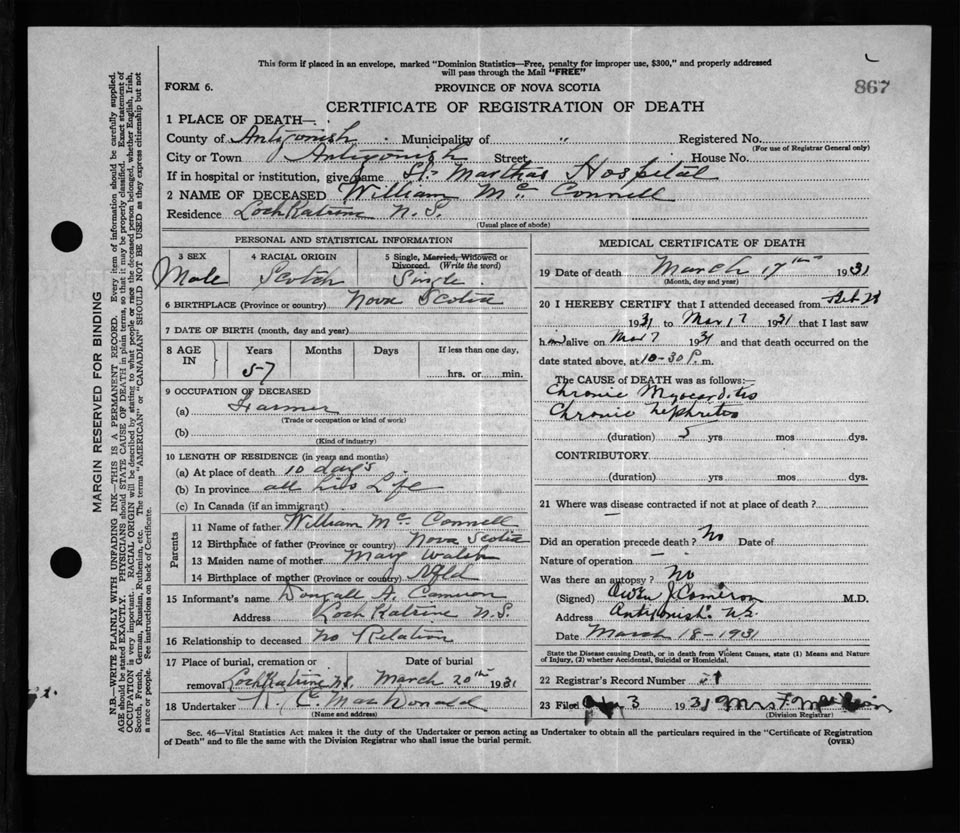 This form if placed in an envelope, marked "Dominion Statistics—Free, penalty for improper use, $300," and properly addressed
will pass through the Mail "FREE"
867
FORM 6.
PROVINCE OF NOVA SCOTIA
CERTIFICATE OF REGISTRATION OF DEATH
1 PLACE OF DEATH—
County of Antigonish Municipality of " Registered No.
(For use of Registrar General only)
City or Town Antigonish Street House No.
If in hospital or institution, give name St. Marthas Hospital
2 NAME OF DECEASED William Mc Connell
Residence Loch Katrine N.S.
(Usual place of abode)
PERSONAL AND STATISTICAL INFORMATION
3 SEX 4 RACIAL ORIGIN 5 Single, Married, Widowed or Divorced. (Write the word)
Male Scotch Single
6 BIRTHPLACE (Province or country) Nova Scotia
7 DATE OF BIRTH (month, day and year)
8 AGE IN Years Months Days If less than one day,
57 hrs. or min.
9 OCCUPATION OF DECEASED
(a) Farmer
(Trade or occupation or kind of work)
(b)
(Kind of industry)
10 LENGTH OF RESIDENCE (in years and months)
(a) At place of death 10 days
(b) In province all his Life
(c) In Canada (if an immigrant)
Parents
11 Name of father William Mc Connell
12 Birthplace of father (Province or country) Nova Scotia
13 Maiden name of mother Mary Walsh
14 Birthplace of mother (Province or country) Nfld
15 Informant's name Dougall A. Cameron
Address Loch Katrine N.S.
16 Relationship to deceased no Relation
17 Place of burial, cremation or removal Date of burial
Loch Katrine N.S. March 20th 1931
18 Undertaker C. MacDonald
(Name and address)
MEDICAL CERTIFICATE OF DEATH
19 Date of death March 17th 1931
(Month, day and year)
20 I HEREBY CERTIFY that I attended deceased from Feb 28
1931 to Mar 17 1931 that I last saw
him alive on Mar 7 1931 and that death occurred on the
date stated above, at 10-30 P.m.
The CAUSE of DEATH was as follows:—
Chronic Myocarditis
Chronic Nephritis
(duration) 5 yrs mos dys.
CONTRIBUTORY
(duration) yrs mos dys.
21 Where was disease contracted if not at place of death?
Did an operation precede death? No Date of
Nature of operation
Was there an autopsy? no
(Signed) Owen J Cameron M.D.
Address Antigonish N.S.
Date March 18-1931
State the Disease causing Death, or in death from Violent Causes, state (1) Means and Nature
of Injury, (2) whether Accidental, Suicidal or Homicidal.
22 Registrar's Record Number
23 Filed 3 1931 Mrs F.
(Division Registrar)
Sec. 46—Vital Statistics Act makes it the duty of the Undertaker or person acting as Undertaker to obtain all the particulars required in the "Certificate of Registration
of Death" and to file the same with the Division Registrar who shall issue the burial permit.
(OVER)
MARGIN RESERVED FOR BINDING
N.B.—WRITE PLAINLY WITH UNFADING INK—THIS IS A PERMANENT RECORD. Every item of information should be carefully supplied.
AGE should be stated EXACTLY. PHYSICIANS should STATE CAUSE OF DEATH in plain terms, so that it may be properly classified. Exact statement of
OCCUPATION is very important. RACIAL ORIGIN will be described by stating to what people or race the deceased person belonged, whether English, Irish,
Scotch, French, German, Russian, Ruthenian, etc. The terms "AMERICAN" or "CANADIAN" SHOULD NOT BE USED as they express citizenship but not
a race or people. See instructions on back of Certificate.